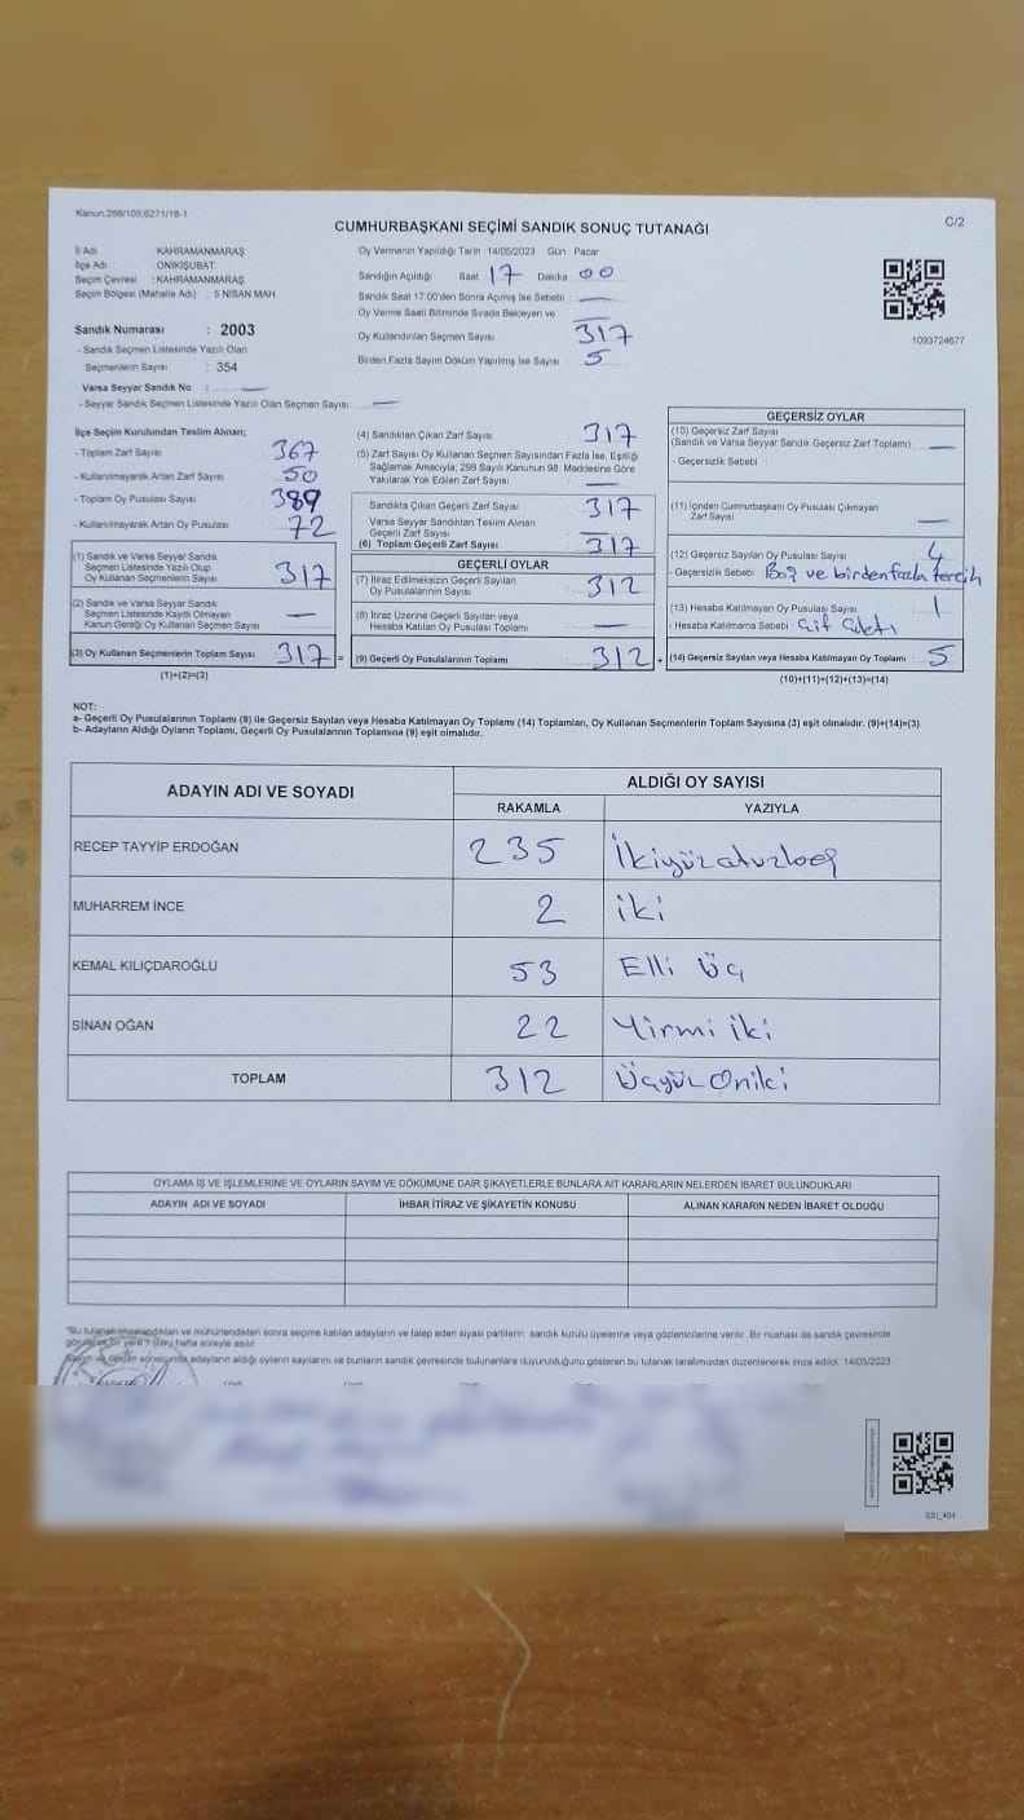 Kanun:298/109;6271/18-1
C/2
CUMHURBAŞKANI SEÇİMİ SANDIK SONUÇ TUTANAĞI
İl Adı : KAHRAMANMARAŞ
İlçe Adı : ONİKİŞUBAT
Seçim Çevresi : KAHRAMANMARAŞ
Seçim Bölgesi (Mahalle Adı) : 5 NİSAN MAH
Sandık Numarası : 2003
- Sandık Seçmen Listesinde Yazılı Olan
Seçmenlerin Sayısı : 354
Varsa Seyyar Sandık No : —
- Seyyar Sandık Seçmen Listesinde Yazılı Olan Seçmen Sayısı: —
Oy Vermenin Yapıldığı Tarih: 14/05/2023 Gün: Pazar
Sandığın Açıldığı Saat 17 Dakika 00
Sandık Saat 17:00'den Sonra Açılmış İse Sebebi: —
Oy Verme Saati Bitiminde Sırada Bekleyen ve —
Oy Kullandırılan Seçmen Sayısı 317
Birden Fazla Sayım Döküm Yapılmış İse Sayısı 5
1093724677
İlçe Seçim Kurulundan Teslim Alınan;
- Toplam Zarf Sayısı 367
- Kullanılmayarak Artan Zarf Sayısı 50
- Toplam Oy Pusulası Sayısı 389
- Kullanılmayarak Artan Oy Pusulası 72
(1) Sandık ve Varsa Seyyar Sandık
Seçmen Listesinde Yazılı Olup
Oy Kullanan Seçmenlerin Sayısı 317
(2) Sandık ve Varsa Seyyar Sandık
Seçmen Listesinde Kayıtlı Olmayan
Kanun Gereği Oy Kullanan Seçmen Sayısı —
(3) Oy Kullanan Seçmenlerin Toplam Sayısı 317 =
(1)+(2)=(3)
(4) Sandıktan Çıkan Zarf Sayısı 317
(5) Zarf Sayısı Oy Kullanan Seçmen Sayısından Fazla İse, Eşitliği
Sağlamak Amacıyla; 298 Sayılı Kanunun 98. Maddesine Göre
Yakılarak Yok Edilen Zarf Sayısı —
Sandıkta Çıkan Geçerli Zarf Sayısı 317
Varsa Seyyar Sandıktan Teslim Alınan
Geçerli Zarf Sayısı —
(6) Toplam Geçerli Zarf Sayısı 317
GEÇERLİ OYLAR
(7) İtiraz Edilmeksizin Geçerli Sayılan
Oy Pusulalarının Sayısı 312
(8) İtiraz Üzerine Geçerli Sayılan veya
Hesaba Katılan Oy Pusulası Toplamı —
(9) Geçerli Oy Pusulalarının Toplamı 312 +
GEÇERSİZ OYLAR
(10) Geçersiz Zarf Sayısı
(Sandık ve Varsa Seyyar Sandık Geçersiz Zarf Toplamı) —
- Geçersizlik Sebebi :
(11) İçinden Cumhurbaşkanı Oy Pusulası Çıkmayan
Zarf Sayısı —
(12) Geçersiz Sayılan Oy Pusulası Sayısı 4
- Geçersizlik Sebebi: Boş ve birden fazla tercih
(13) Hesaba Katılmayan Oy Pusulası Sayısı 1
- Hesaba Katılmama Sebebi: Çift Çıktı
(14) Geçersiz Sayılan veya Hesaba Katılmayan Oy Toplamı 5
(10)+(11)+(12)+(13)=(14)
NOT:
a- Geçerli Oy Pusulalarının Toplamı (9) ile Geçersiz Sayılan veya Hesaba Katılmayan Oy Toplamı (14) Toplamları, Oy Kullanan Seçmenlerin Toplam Sayısına (3) eşit olmalıdır. (9)+(14)=(3)
b- Adayların Aldığı Oyların Toplamı, Geçerli Oy Pusulalarının Toplamına (9) eşit olmalıdır.
ADAYIN ADI VE SOYADI ALDIĞI OY SAYISI
RAKAMLA YAZIYLA
RECEP TAYYİP ERDOĞAN 235 İkiyüzotuzbeş
MUHARREM İNCE 2 iki
KEMAL KILIÇDAROĞLU 53 Elli Üç
SİNAN OĞAN 22 Yirmi iki
TOPLAM 312 Üçyüz Oniki
OYLAMA İŞ VE İŞLEMLERİNE VE OYLARIN SAYIM VE DÖKÜMÜNE DAİR ŞİKAYETLERLE BUNLARA AİT KARARLARIN NELERDEN İBARET BULUNDUKLARI
ADAYIN ADI VE SOYADI İHBAR İTİRAZ VE ŞİKAYETİN KONUSU ALINAN KARARIN NEDEN İBARET OLDUĞU
ve mühürlendikten sonra seçime katılan adayların ve talep eden siyasi partilerin sandık kurulu üyelerine veya gözlemcilerine verilir. Bir nüshası da sandık çevresinde
bir hafta süreyle asılır.
adayların aldığı oyların sayılarını ve bunların sandık çevresinde bulunanlara duyurulduğunu gösteren bu tutanak tarafımızdan düzenlenerek imza edildi. 14/05/2023